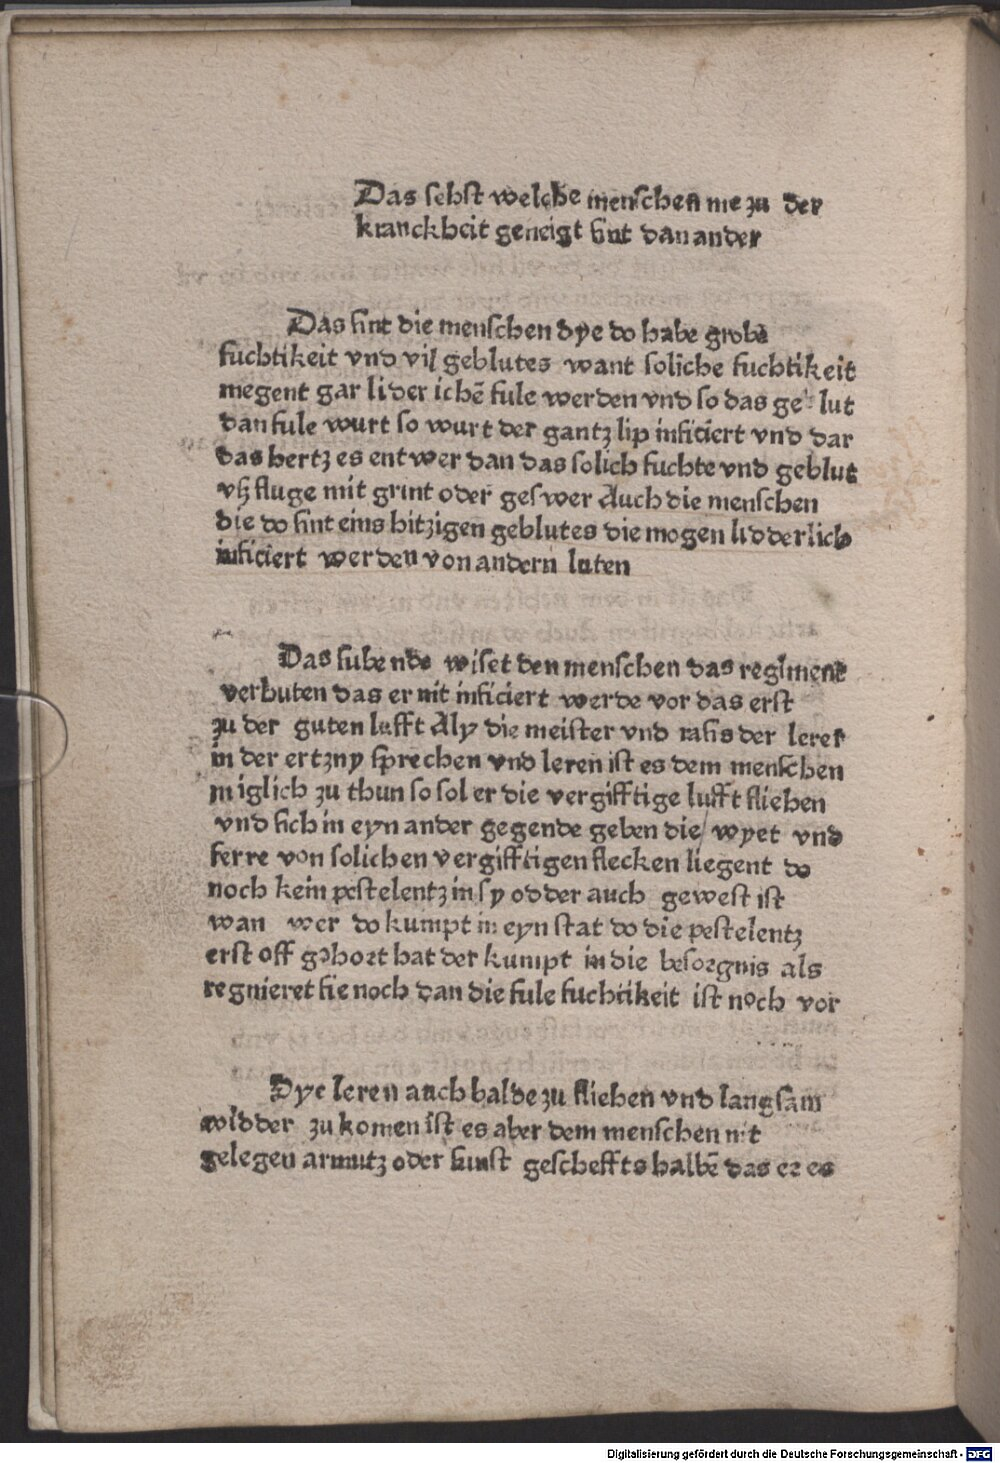 Das sehst welche menschen me zu der
kranckheit geneigt sint dan ander
Das sint die menschen dye do habe grobe
fuchtikeit vnd vil geblutes want soliche fuchtikeit
megent gar lider ichē fule werden vnd so das ge lut
dan fule wurt so wurt der gantz lip inficiert vnd dar
das hertz es entwer dan das solich fuchte vnd geblut
vſz fluge mit grint oder geswer Auch die menschen
die do sint eins hitzigen geblutes die mogen lidderlich
inficiert werden von andern luten
Das subende wiset den menschen das regiment
verhuten das er nit inficiert werde vor das erst
zu der guten lufft Aly die meister vnd rasis der lerer
in der ertzny sprechen vnd leren ist es dem menschen
miglich zu thun so sol er die vergifftige lufft fliehen
vnd sich in eyn ander gegende geben die wyet vnd
ferre von solichen vergifftigen flecken liegent do
noch kein pestelentz in sy odder auch gewest ist
wan wer do kumpt in eyn stat do die pestelentz
erst off gehort hat der kumpt in die besorgnis als
regnieret sie noch dan die fule fuchtikeit ist noch vor
Dye leren auch balde zu fliehen vnd langsam
widder zu komen ist es aber dem menschen nit
gelegen armutz oder sunst gescheffts halbē das er es
Digitalisierung gefördert durch die Deutsche Forschungsgemeinschaft - DFG